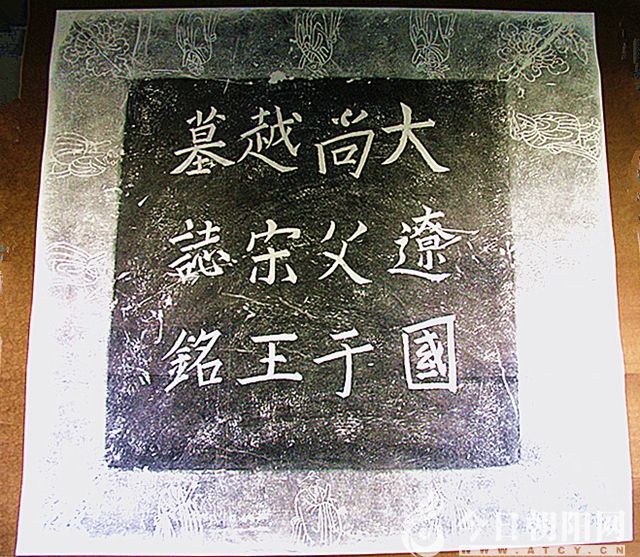 大遼國
尚父于
越宋王
墓誌銘
今日朝阳网
WWW.ATCY.CN